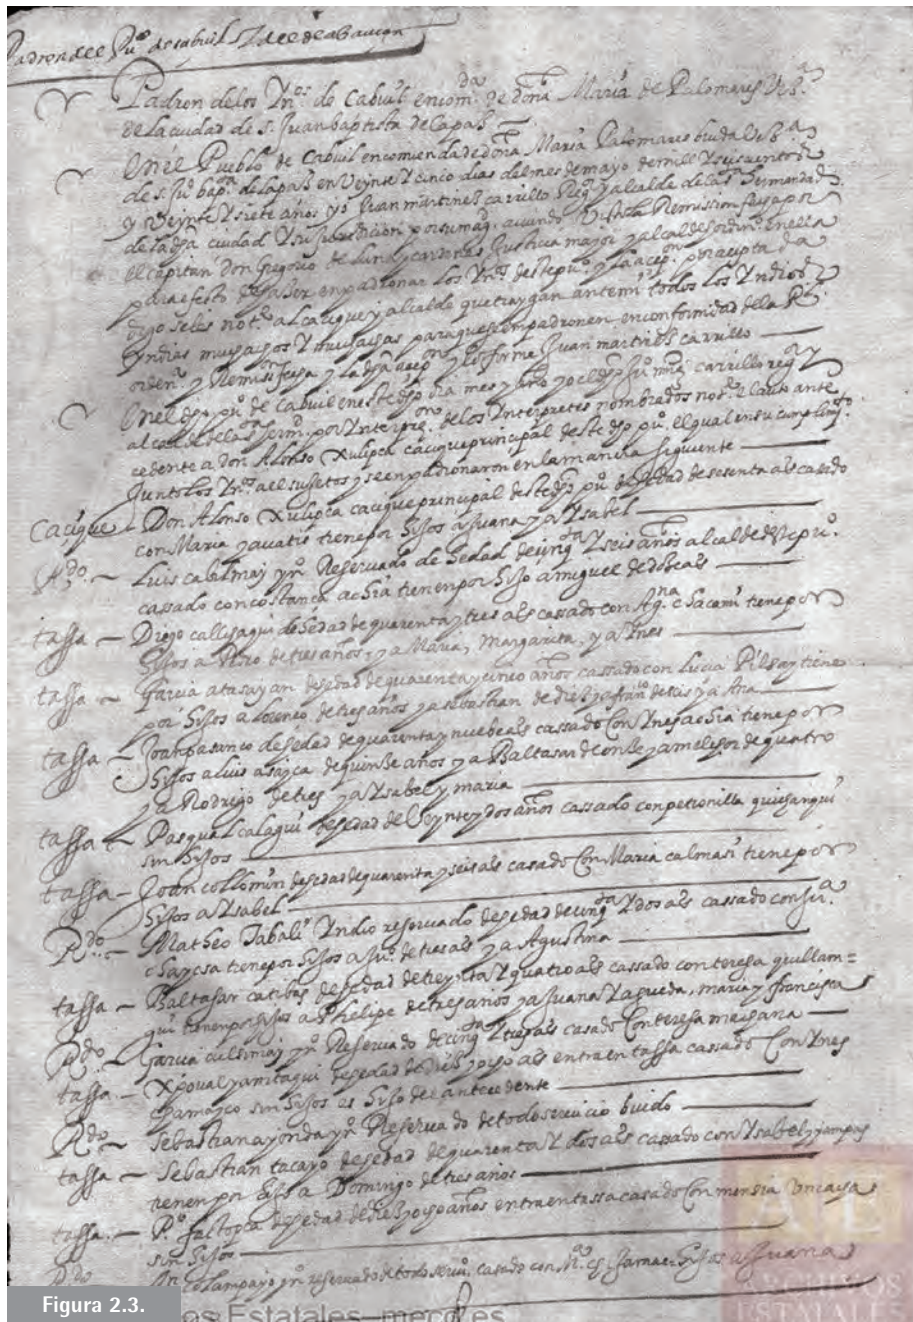 Padron del Pu.º de cabuil
Padron delos Yn.os de Cabuil encom.da de doña Maria de Palomares Vez.ª
de la ciudad de s. Juan baptista de la pas
En el Pueblo de Cabuil encomienda de doña Maria Palomares biuda Vez.ª
de s. Ju.º bap.ta de la pas en Veynte Y cinco dias del mes de mayo de mill Y seiscientos
y Veynte Y siete años yo Juan martines carrillo Reg.or Y alcalde de la s.ta Hermandad
de la dha ciudad Y su Juredicion por su mag.d auiendo Vista la Remission fecha por
el capitan Don Gregorio de Luna y cardenas Justicia mayor y alcalde ordin.º en ella
para efeto de haser enpadronar los Yn.os deste pu.º y la acep.on por acepta da
digo se les not.e al cacique y alcalde que traygan ante mi todos los Yndios
Yndias muchachos Y muchachas para que se enpadronen en conformidad de la R.l
orden.ª y Remision fecha y la dha acep.on y lo firme Juan martines carrillo
En el dho pu.º de Cabuil en este dho dia mes y año yo el dho Ju.º mrns carrillo reg.or Y
alcalde de la s.ta herm.d por Ynterpre.on de los Ynterpretes nombrados not.e el auto ante
cedente a Don Alonso Xulipca cacique principal deste dho pu.º el qual en su cumplim.to
Junto los Yn.os a el sujetos y se enpadronaron en la manera siguiente
Cacique – Don Alonso Xulipca cacique principal deste dho pu.º de hedad de sesenta as casado
con Maria yauatis tiene por hijos a Juana y a Ysabel
R.do – Luis cabalmay yn.º Reservado de hedad de cinq.ta Y seis años alcalde deste pu.º
cassado con costança achia tienen por hijo a miguel de dose as
tassa – Diego callisaqui de hedad de quarenta y tres as cassado con Ag.na chacami tiene por
hijos a Pedro de tres años, y a Maria, Margarita, y a Ynes
tassa – Garcia atasayan de hedad de quarenta y cinco años cassado con Lucia Pilsay tiene
por hijos a Lorenço de tres años y a sebastian de dies y a fran.co de seis y a Ana
tassa – Joan pasanco de hedad de quarenta y nuebe as cassado Con Ynes achia tiene por
hijos a luis asayca de quinse años y a Baltasar de onse y a melchor de quatro
y a Rodrigo de tres y a Ysabel y maria
tassa – Pasqual calaqui de hedad de Veynte y dos años cassado con petronilla quichanqui
sin hijos
tassa – Joan collomin de hedad de quarenta y seis as casado Con Maria calmasi tiene por
hijos a Ysabel
R.do – Matheo Tabali Yndio reservado de hedad de cinq.ta Y dos as cassado con
chaycsa tiene por hijos a Ju.º de tres as y a Agustina
tassa – Baltasar caribas de hedad de treynta Y quatro as cassado con teresa quillam=
qui tienen por hijos a Phelipe de tres años y a Juana Y agueda, maria y francisca
R.do – Garcia culimay yn.º Reservado de cinq.ta Y tres as casado Con teresa maichana
tassa – Xpoual yamitaqui de hedad de dies y ocho as entra en tassa cassado Con Ynes
chamayco sin hijos es hijo del antecedente
R.do – Sebastian ayonda yn.º Reservado de todo seruicio biudo
tassa – Sebastian tacayo de hedad de quarenta Y dos as cassado con Ysabel yampas
tienen por hijo a Domingo de tres años
tassa – P.º faltopca de hedad de dies y ocho años entra en tassa casado Con mensia Vncaysa
sin hijos
R.do – yn.º reservado de todo seru.º casado con hijos a Juana
Figura 2.3.
os Estatales mecd.es
ARCHIVOS
ESTATALES